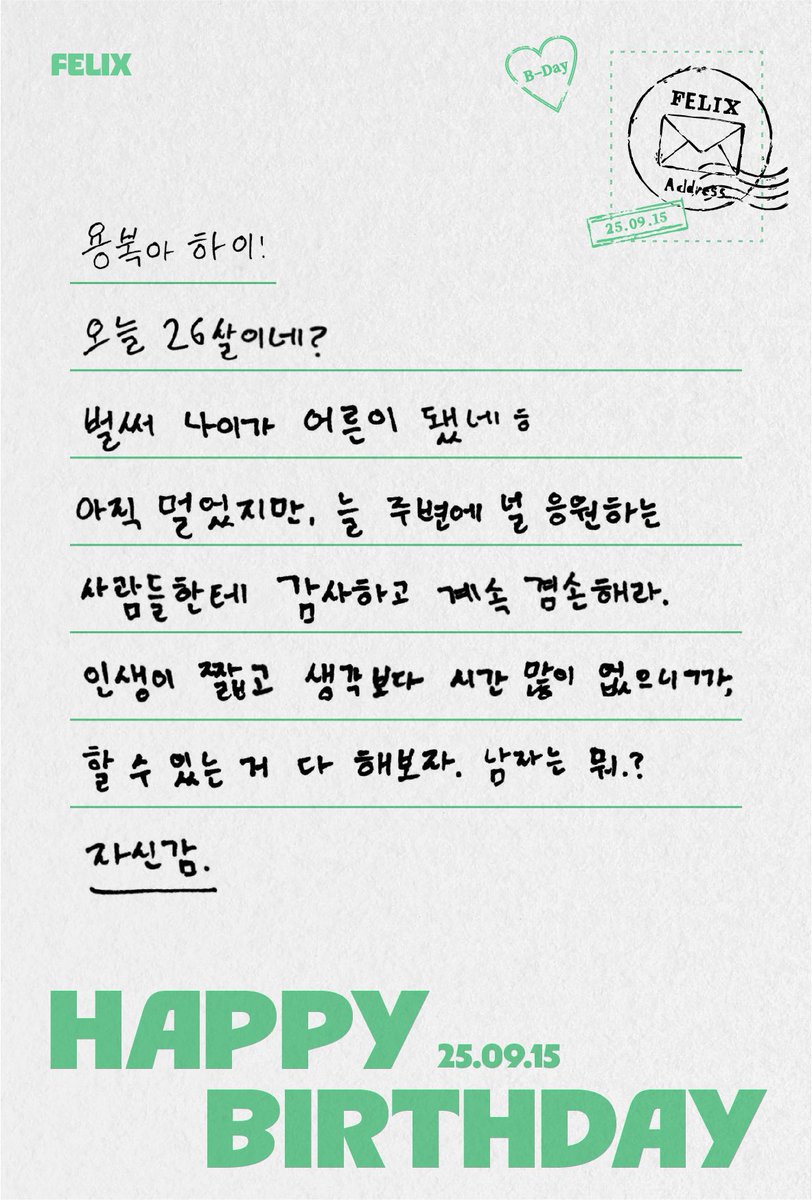 FELIX
B-Day
FELIX
Address
25.09.15
용복아 하이!
오늘 26살이네?
벌써 나이가 어른이 됐네 ㅎ
아직 멀었지만, 늘 주변에 널 응원하는
사람들한테 감사하고 계속 겸손해라.
인생이 짧고 생각보다 시간 많이 없으니까,
할 수 있는 거 다 해보자. 남자는 뭐.?
자신감.
HAPPY
25.09.15
BIRTHDAY